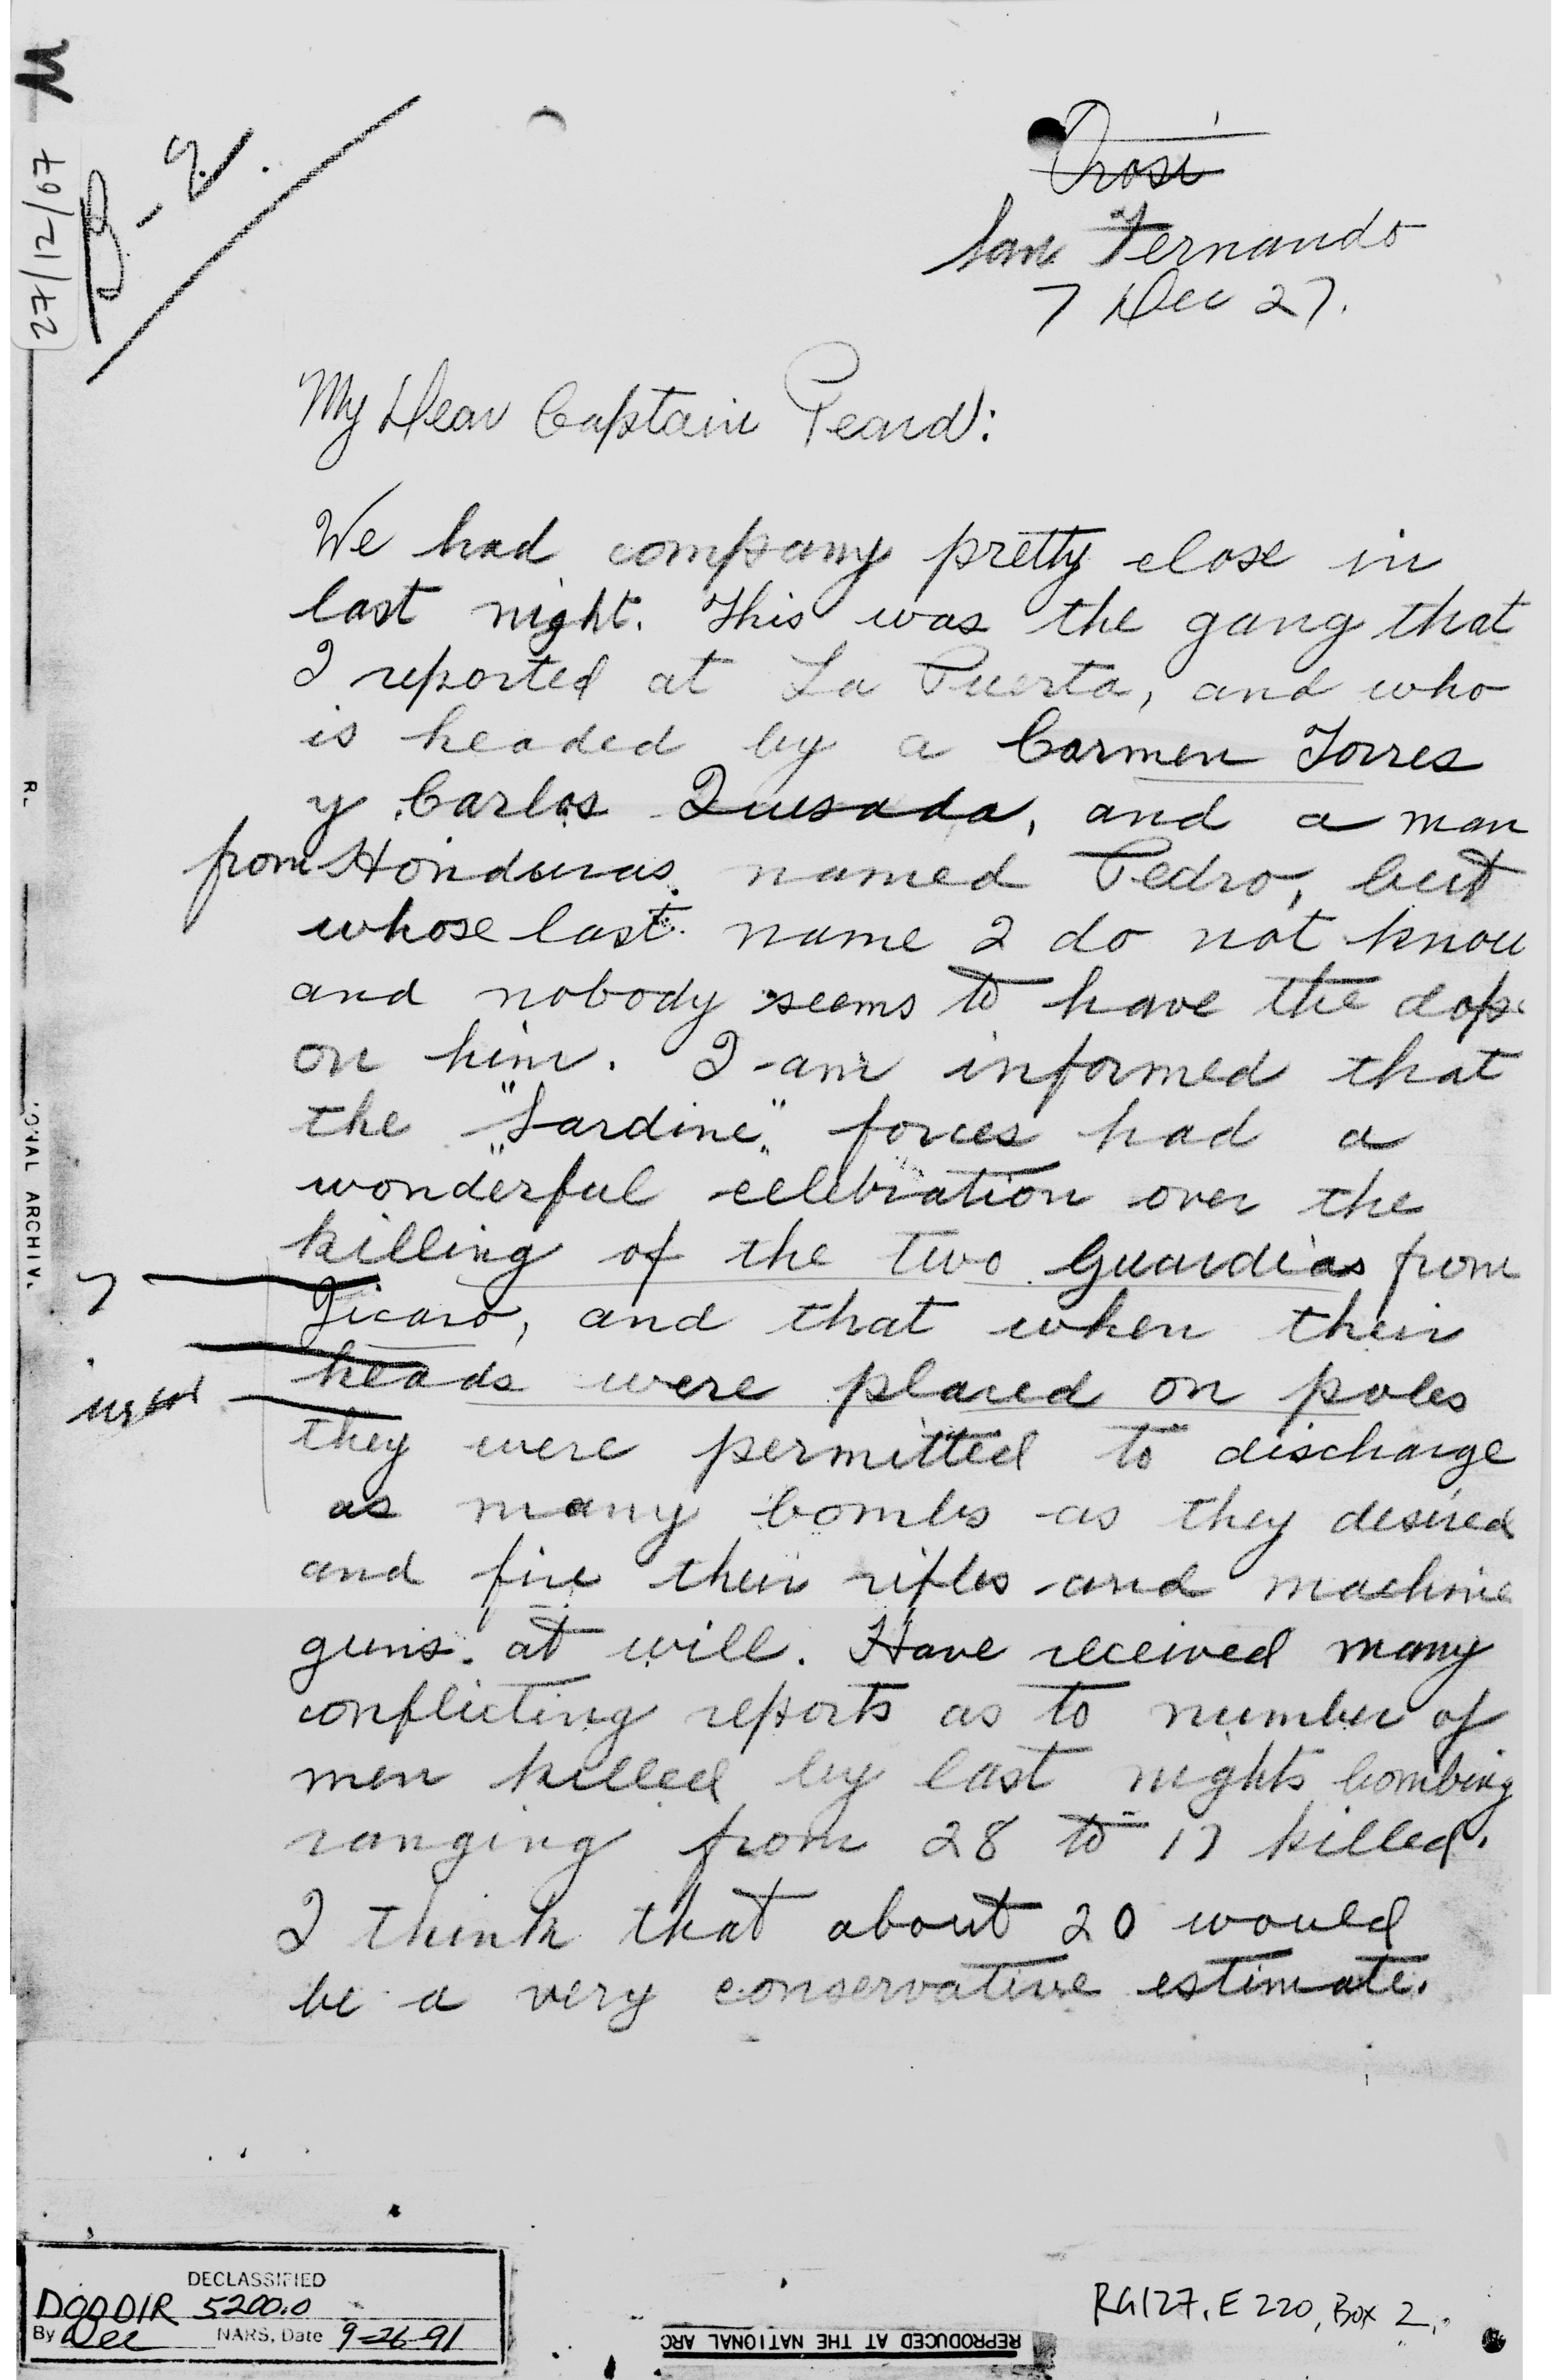 M
27/12/07
B-2.
Orosi
San Fernando
7 Dec 27.
My Dear Captain Peard:
We had company pretty close in
last night. This was the gang that
I reported at La Puerta, and who
is headed by a Carmen Torres
y Carlos Quesada, and a man
from Honduras. named Pedro, but
whose last name I do not know
and nobody seems to have the dope
on him. I am informed that
the "Sardine" forces had a
wonderful celebration over the
killing of the two Guardias from
Jicaro, and that when their
heads were placed on poles
they were permitted to discharge
as many bombs as they desired
and fire their rifles and machine
guns at will. Have received many
conflicting reports as to number of
men killed by last nights bombing
ranging from 28 to 17 killed.
I think that about 20 would
be a very conservative estimate.
IONAL ARCHIV.
DECLASSIFIED
DOD DIR 5200.0
By NARS, Date 9-26-91
REPRODUCED AT THE NATIONAL ARC
RG127, E220, Box 2,